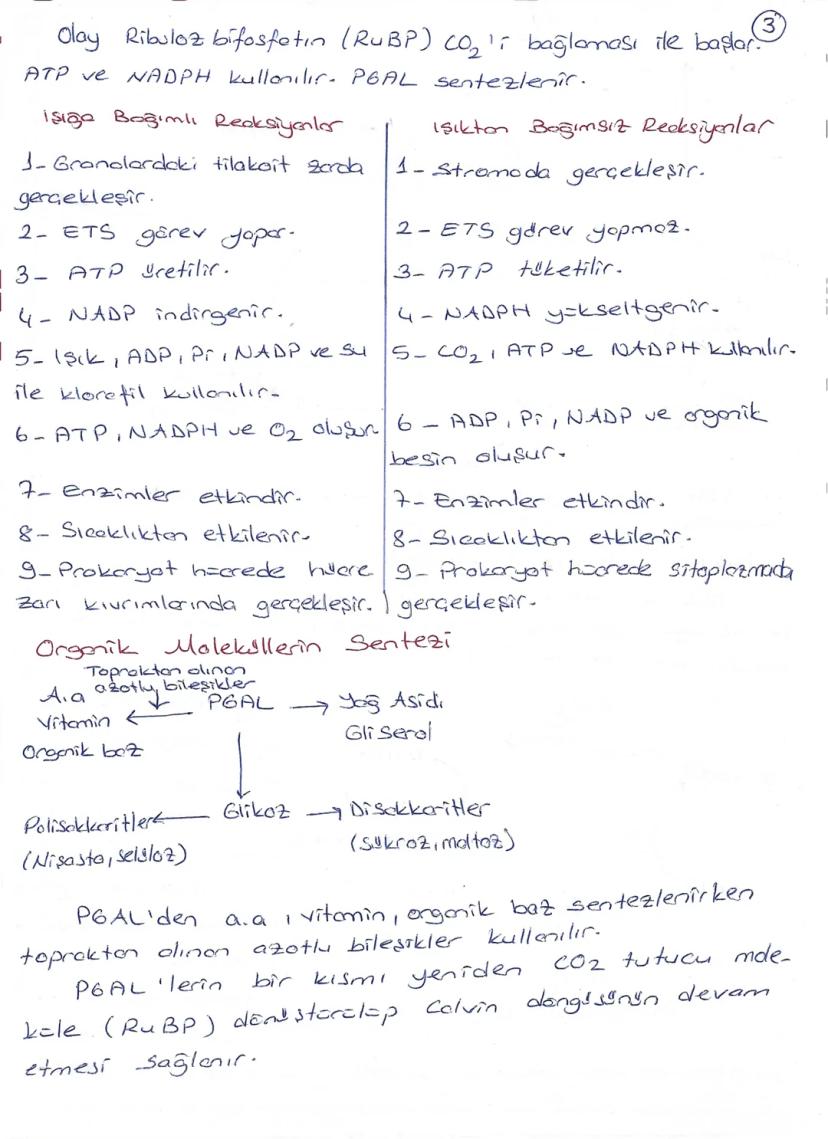 3
Olay Ribuloz bifosfatın (RuBP) CO2'i bağlaması ile başlar.
ATP ve NADPH kullanılır. PGAL sentezlenir.
Işığa Bağımlı Reaksiyonlar
1- Granalardaki tilakoit zarda
gerçekleşir.
2- ETS görev yapar.
3- ATP üretilir.
4- NADP indirgenir.
5- Işık, ADP, Pi, NADP ve su
ile klorofil kullanılır.
6- ATP, NADPH ve O2 oluşur
7- Enzimler etkindir.
8- Sıcaklıktan etkilenir.
9- Prokaryot hücrede hücre
zarı kıvrımlarında gerçekleşir.
Işıktan Bağımsız Reaksiyonlar
1- Stromada gerçekleşir.
2- ETS görev yapmaz.
3- ATP tüketilir.
4- NADPH yükseltgenir.
5- CO2, ATP ve NADPH kullanılır.
6- ADP, Pi, NADP ve organik
besin oluşur.
7- Enzimler etkindir.
8- Sıcaklıktan etkilenir.
9- Prokaryot hücrede sitoplazmada
gerçekleşir.
Organik Moleküllerin Sentezi
Topraktan alınan
azotlu bileşikler
A.a
Vitamin
Organik baz
PGAL → Yağ Asidi
Gliserol
Polisakkaritler ← Glikoz → Disakkaritler
(Nişasta, selüloz)
(Sükroz, maltoz)
PGAL'den a.a, vitamin, organik baz sentezlenirken
topraktan alınan azotlu bileşikler kullanılır.
PGAL'lerin bir kısmı yeniden CO2 tutucu mole-
küle (RuBP) dönüştürülüp Calvin döngüsünün devam
etmesi sağlanır.